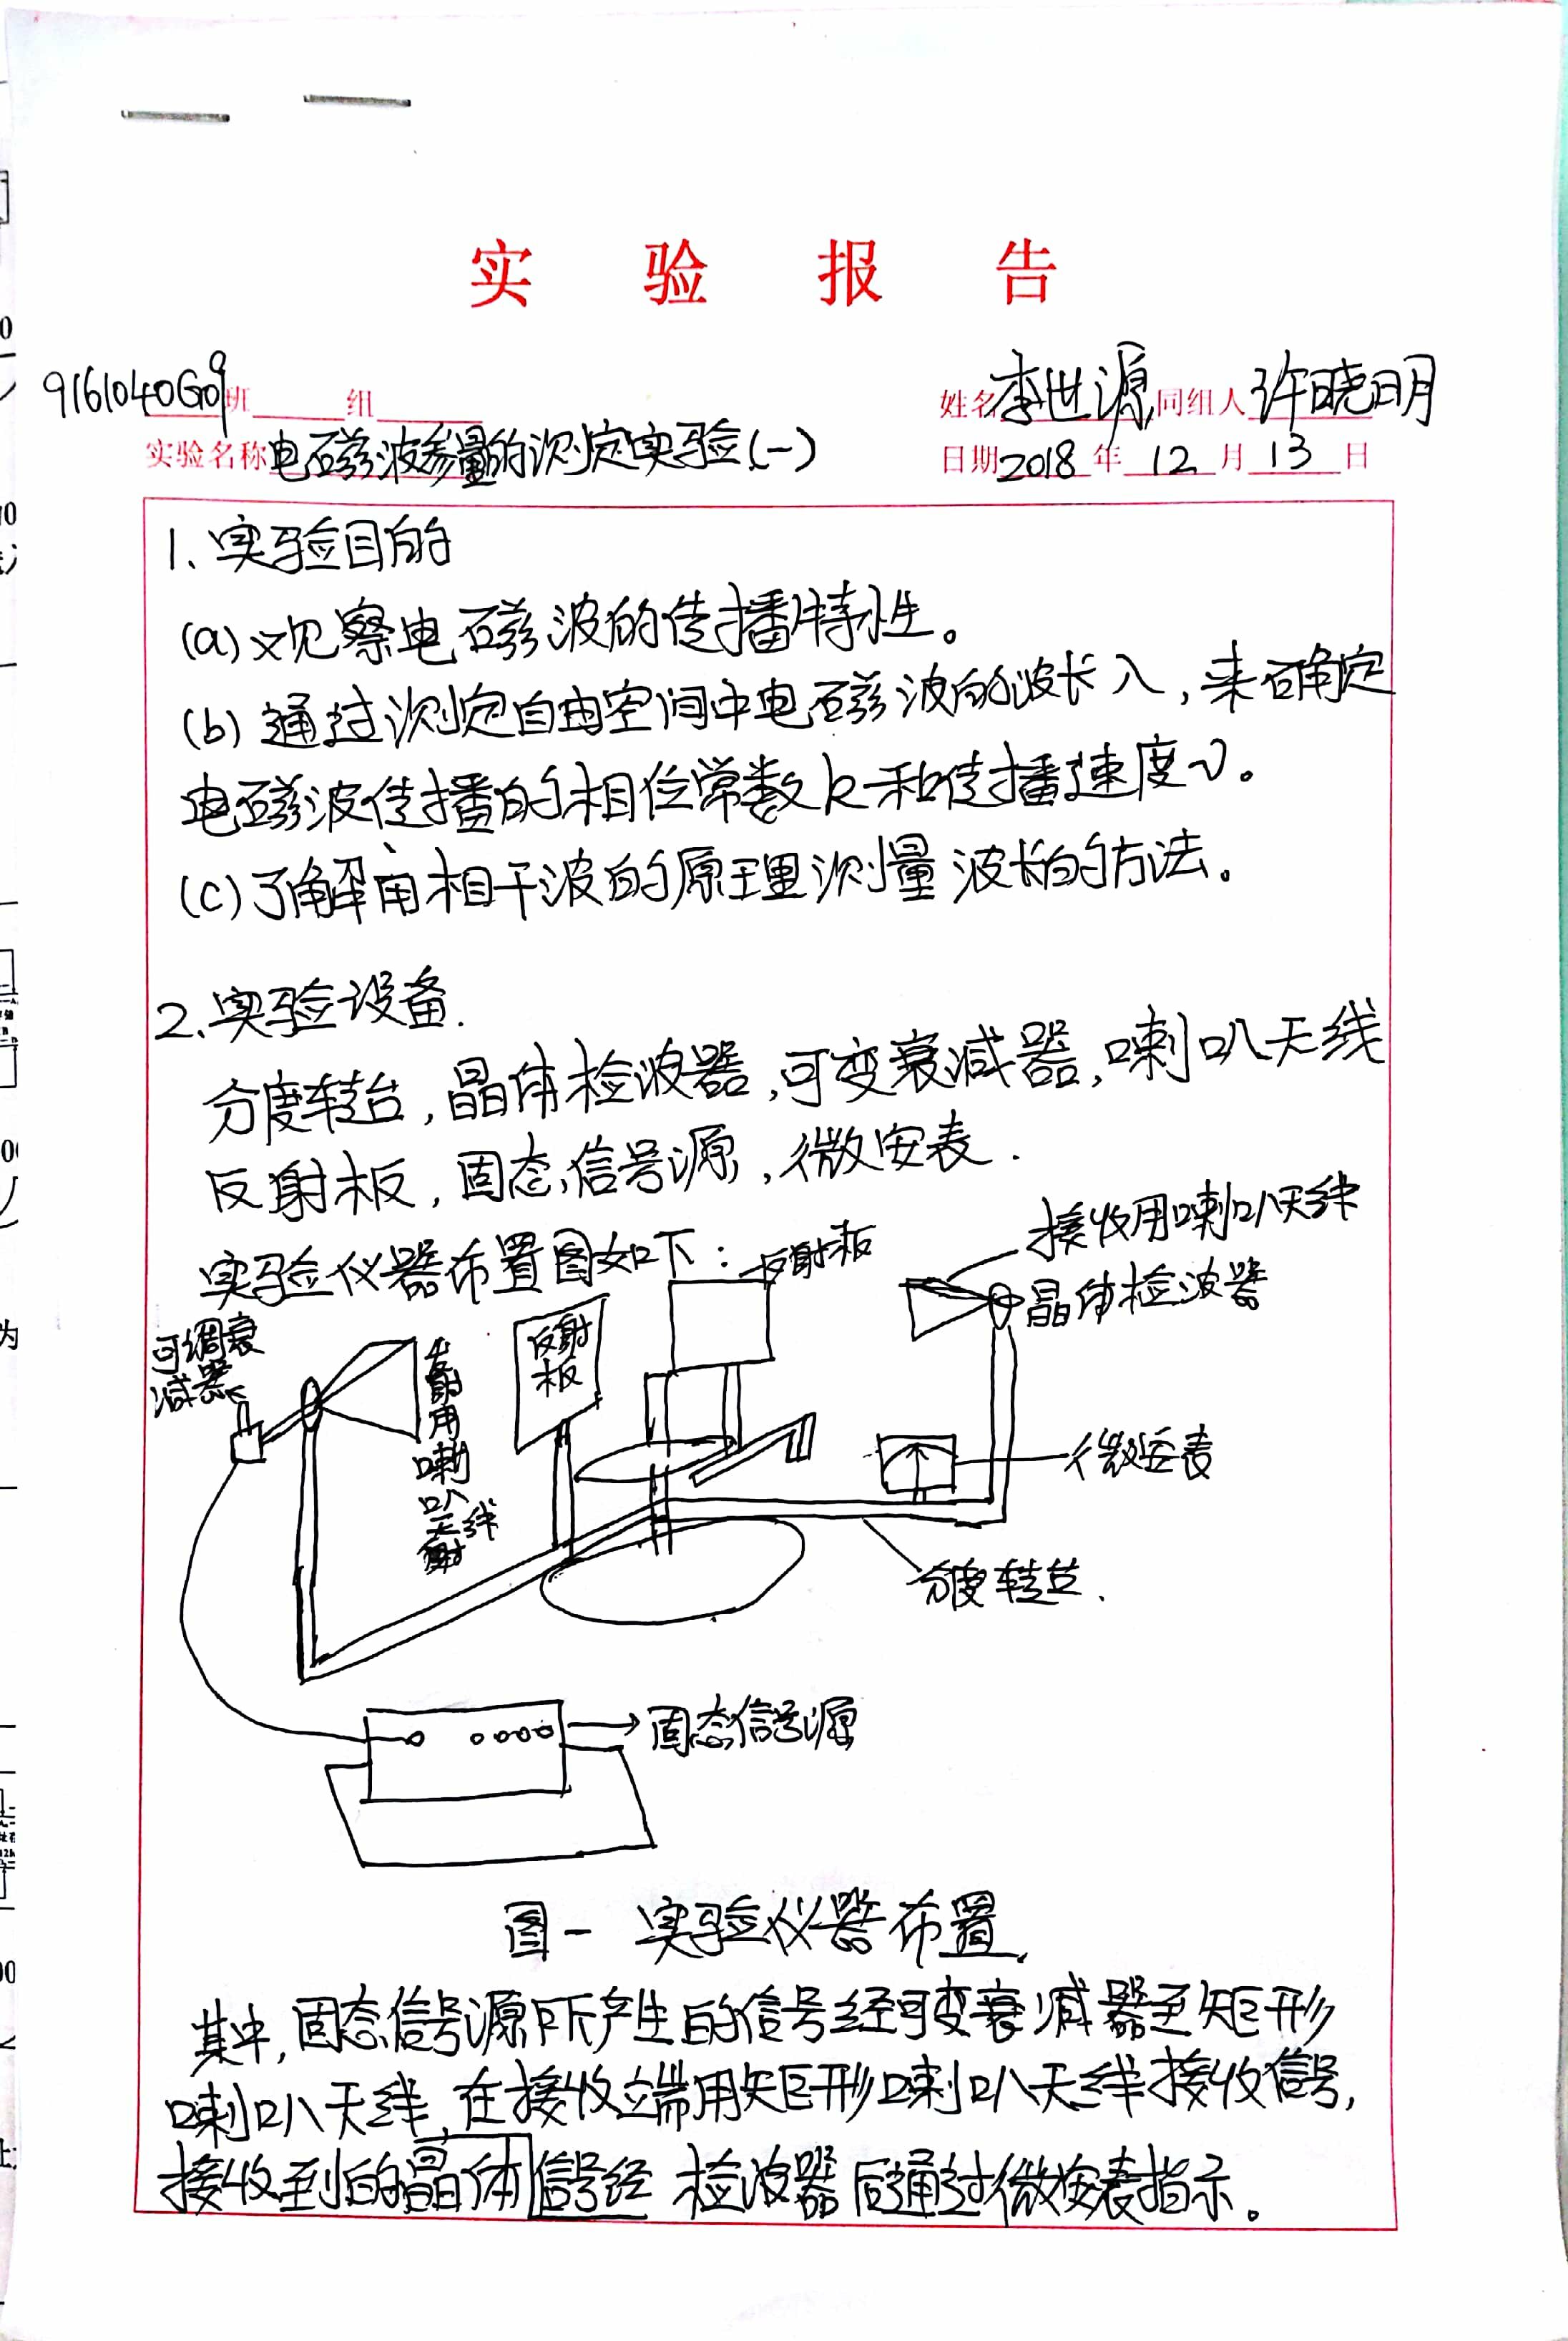 实验报告
9161040G09班 组 姓名李世源同组人许晓明
实验名称电磁波参量的测定实验(一) 日期2018年12月13日
1、实验目的
(a)观察电磁波的传播特性。
(b)通过测定自由空间中电磁波的波长λ,来确定
电磁波传播的相位常数k和传播速度v。
(c)了解用相干波的原理测量波长的方法。
2、实验设备.
分度转台,晶体检波器,可变衰减器,喇叭天线
反射板,固态信号源,微安表.
实验仪器布置图如下:
反射板
接收用喇叭天线
晶体检波器
可调衰
减器
发射用喇叭天线
反射
板
微安表
分度转台.
固态信号源
图一 实验仪器布置.
其中,固态信号源所产生的信号经可变衰减器至矩形
喇叭天线,在接收端用矩形喇叭天线接收信号,
接收到的晶体信号经 检波器后通过微安表指示。